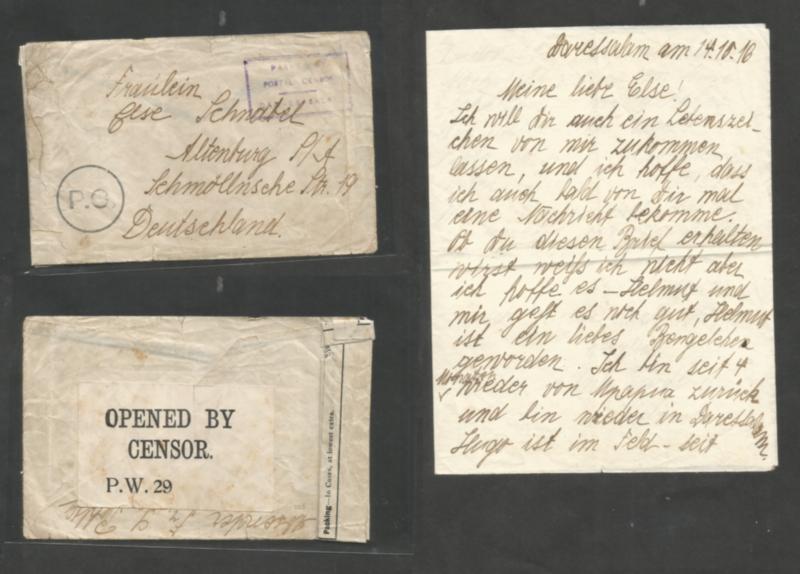 Fräulein
Else Schnabel
Altenburg S/A
Schmöllnsche Str. 19
Deutschland.
POSTAL CENSOR
P.C.
OPENED BY
CENSOR.
P.W. 29
Packing—In Cases, at lowest extra.
Absender Fr.
Daressalam am 14.10.16
Meine liebe Else!
Ich will dir auch ein Lebenszei-
chen von mir zukommen
lassen, und ich hoffe, dass
ich auch bald von dir mal
eine Nachricht bekomme.
Ob du diesen Brief erhalten
wirst weiß ich nicht aber
ich hoffe es – Helmut und
mir geht es noch gut, Helmut
ist ein liebes Bengelchen
geworden. Ich bin seit 4
Monaten
wieder von zurück
und bin wieder in Daressalam
Hugo ist im Feld – seit